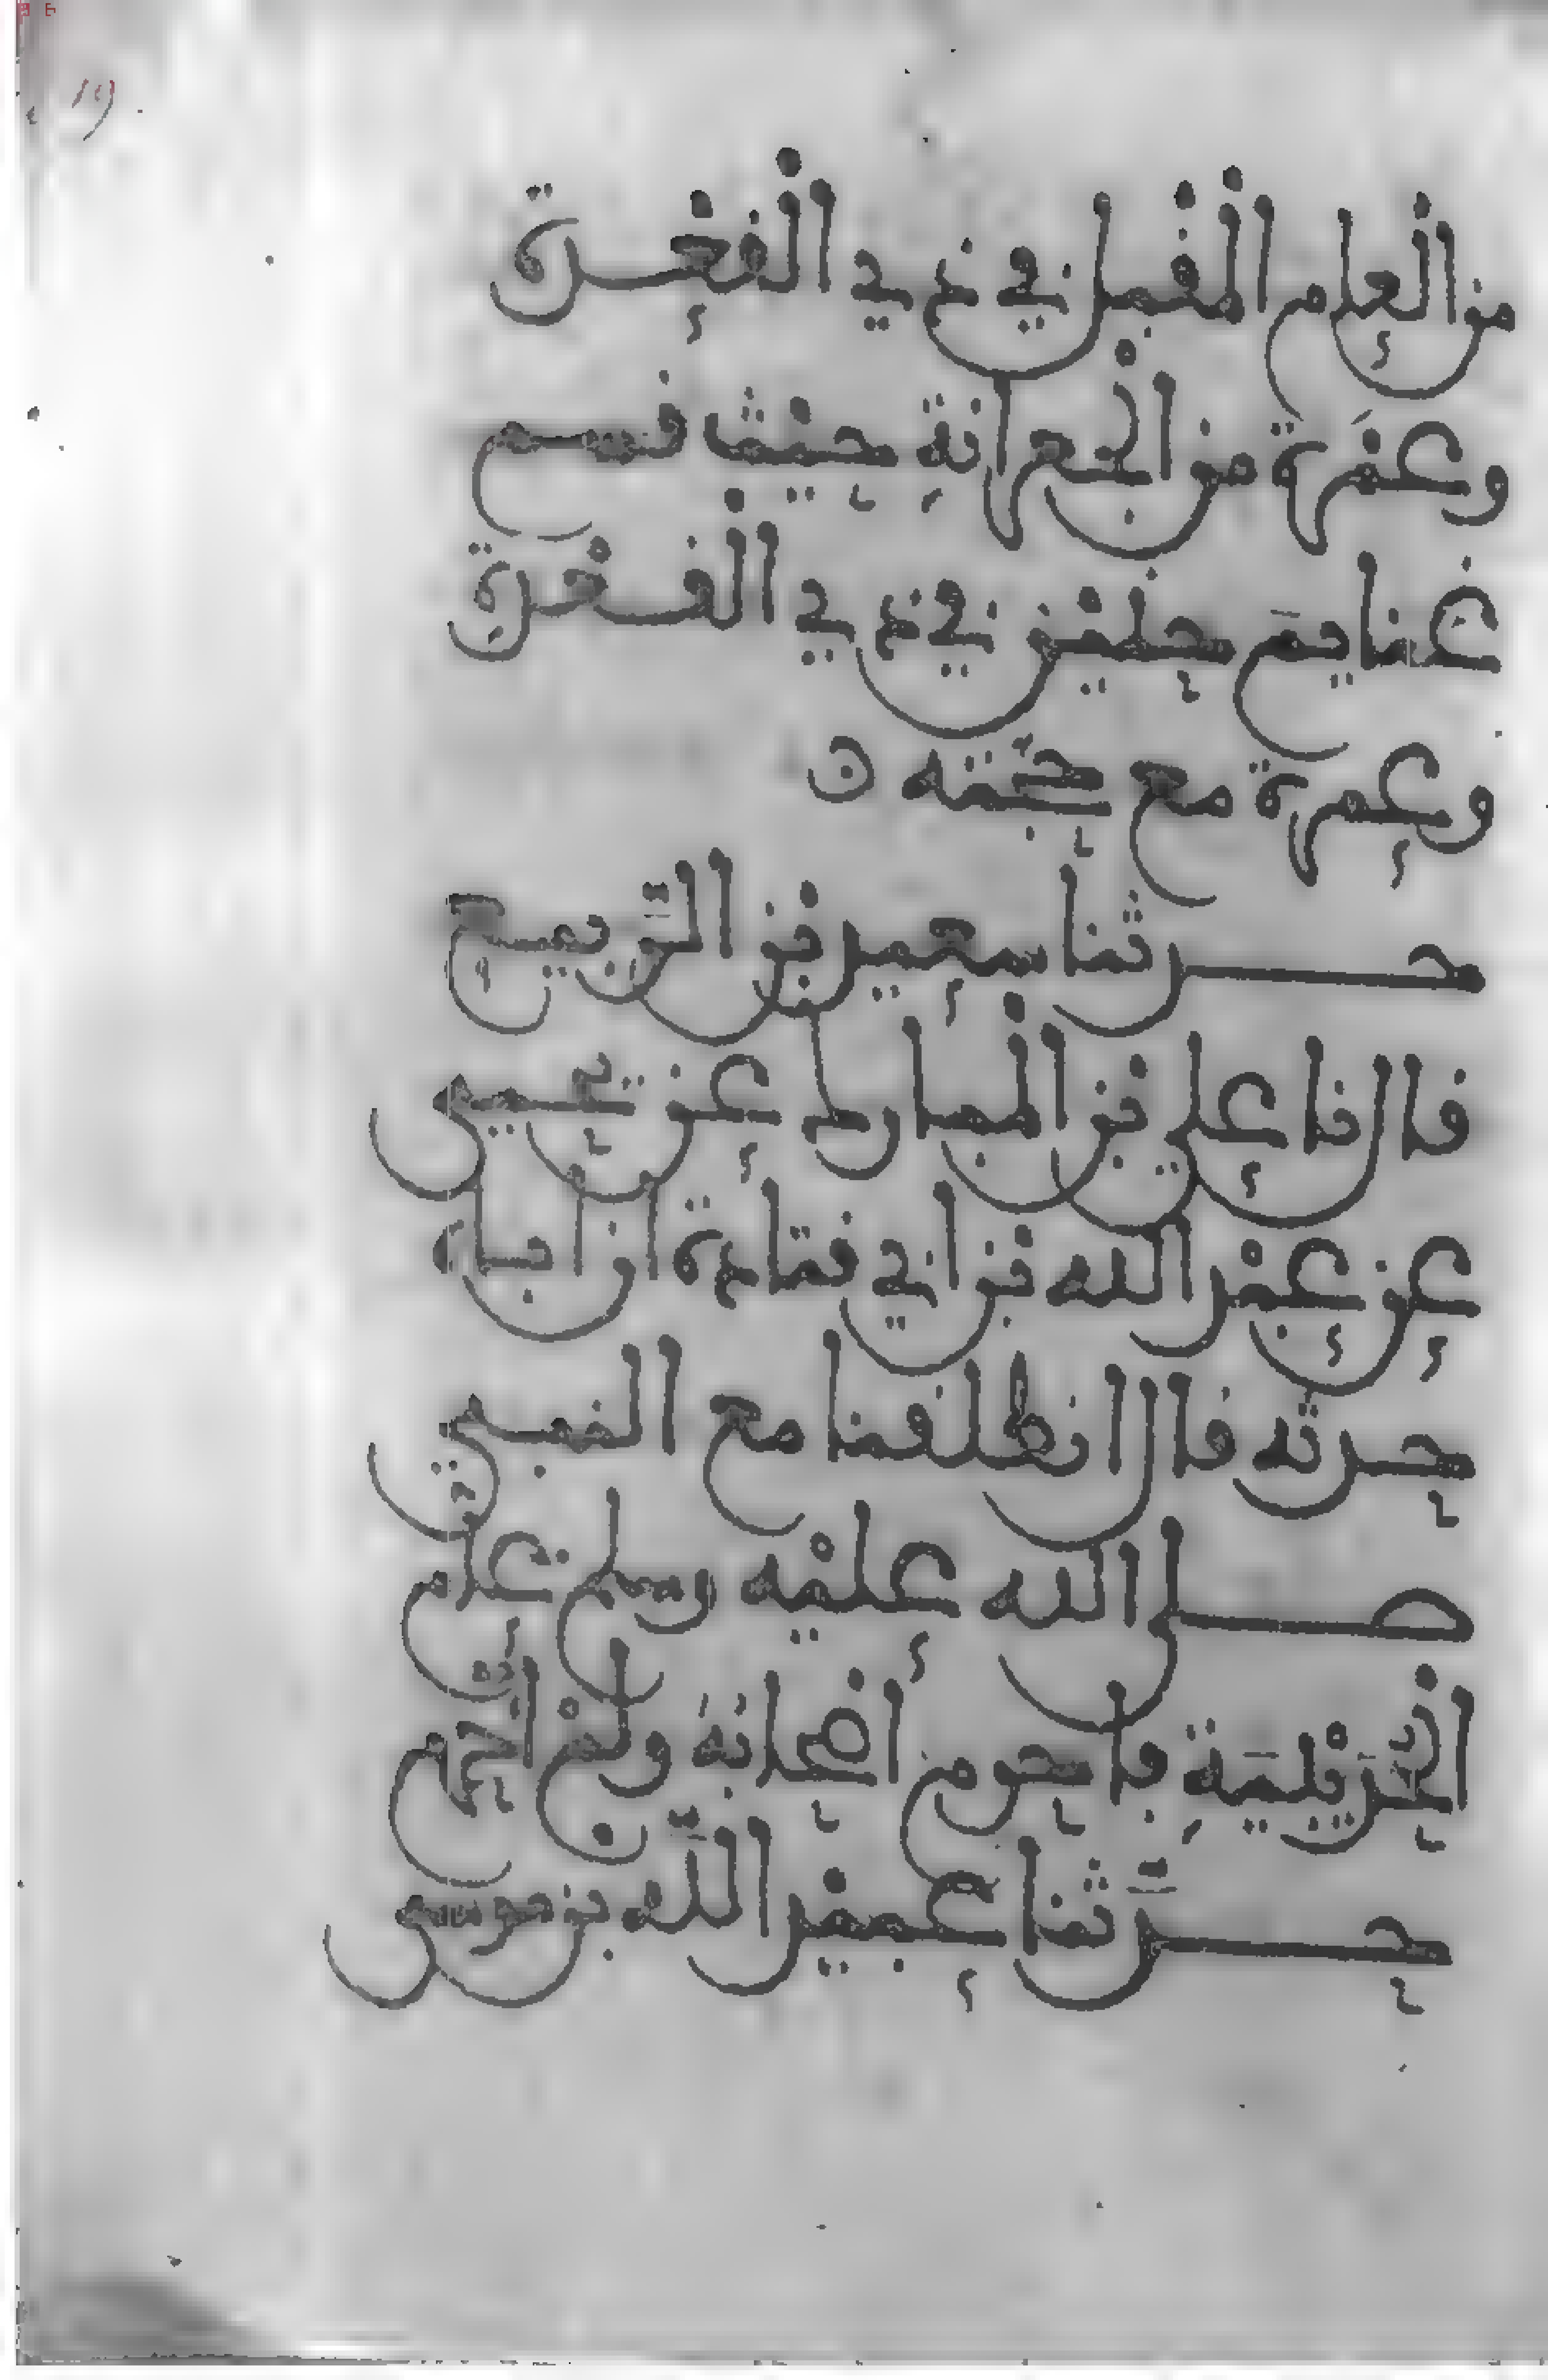 19
من الْعام الْمقبل في ذي الْقعْدة
وعمَرة من الْجعرانةِ حيْث قسم
غنايمَ حنيْن في ذي القعْدةِ
وعمرة مع حجّته ن
حدثنا سعيد بْن الرَّبيع
قال نا علي بْن الْمبارك عن يحيى
عن عبْد الله بْن ابي قتادة ان اباه
حدثه قال انطلقنا مع النبي
صلى الله عليْه وسلم عام
الْحُدَيْبيَةِ فاحرم أصْحابُهُ ولمْ أُحْرم
حدَّثنا عبيْد اللَّه بن موسى